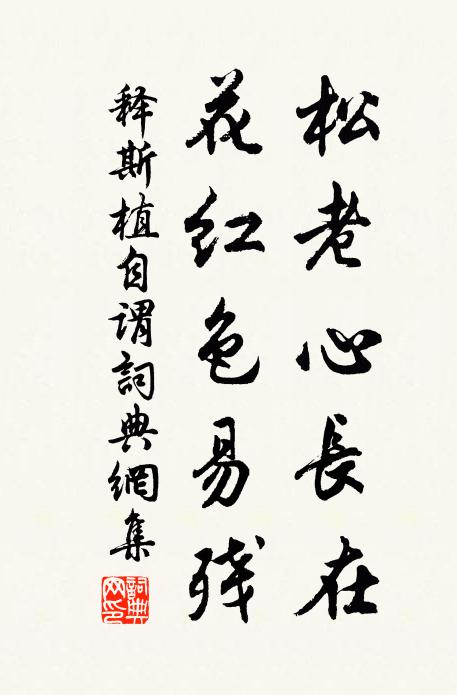 松老心長在
花红色易残
释斯植自谓詞典網集
詞典网印